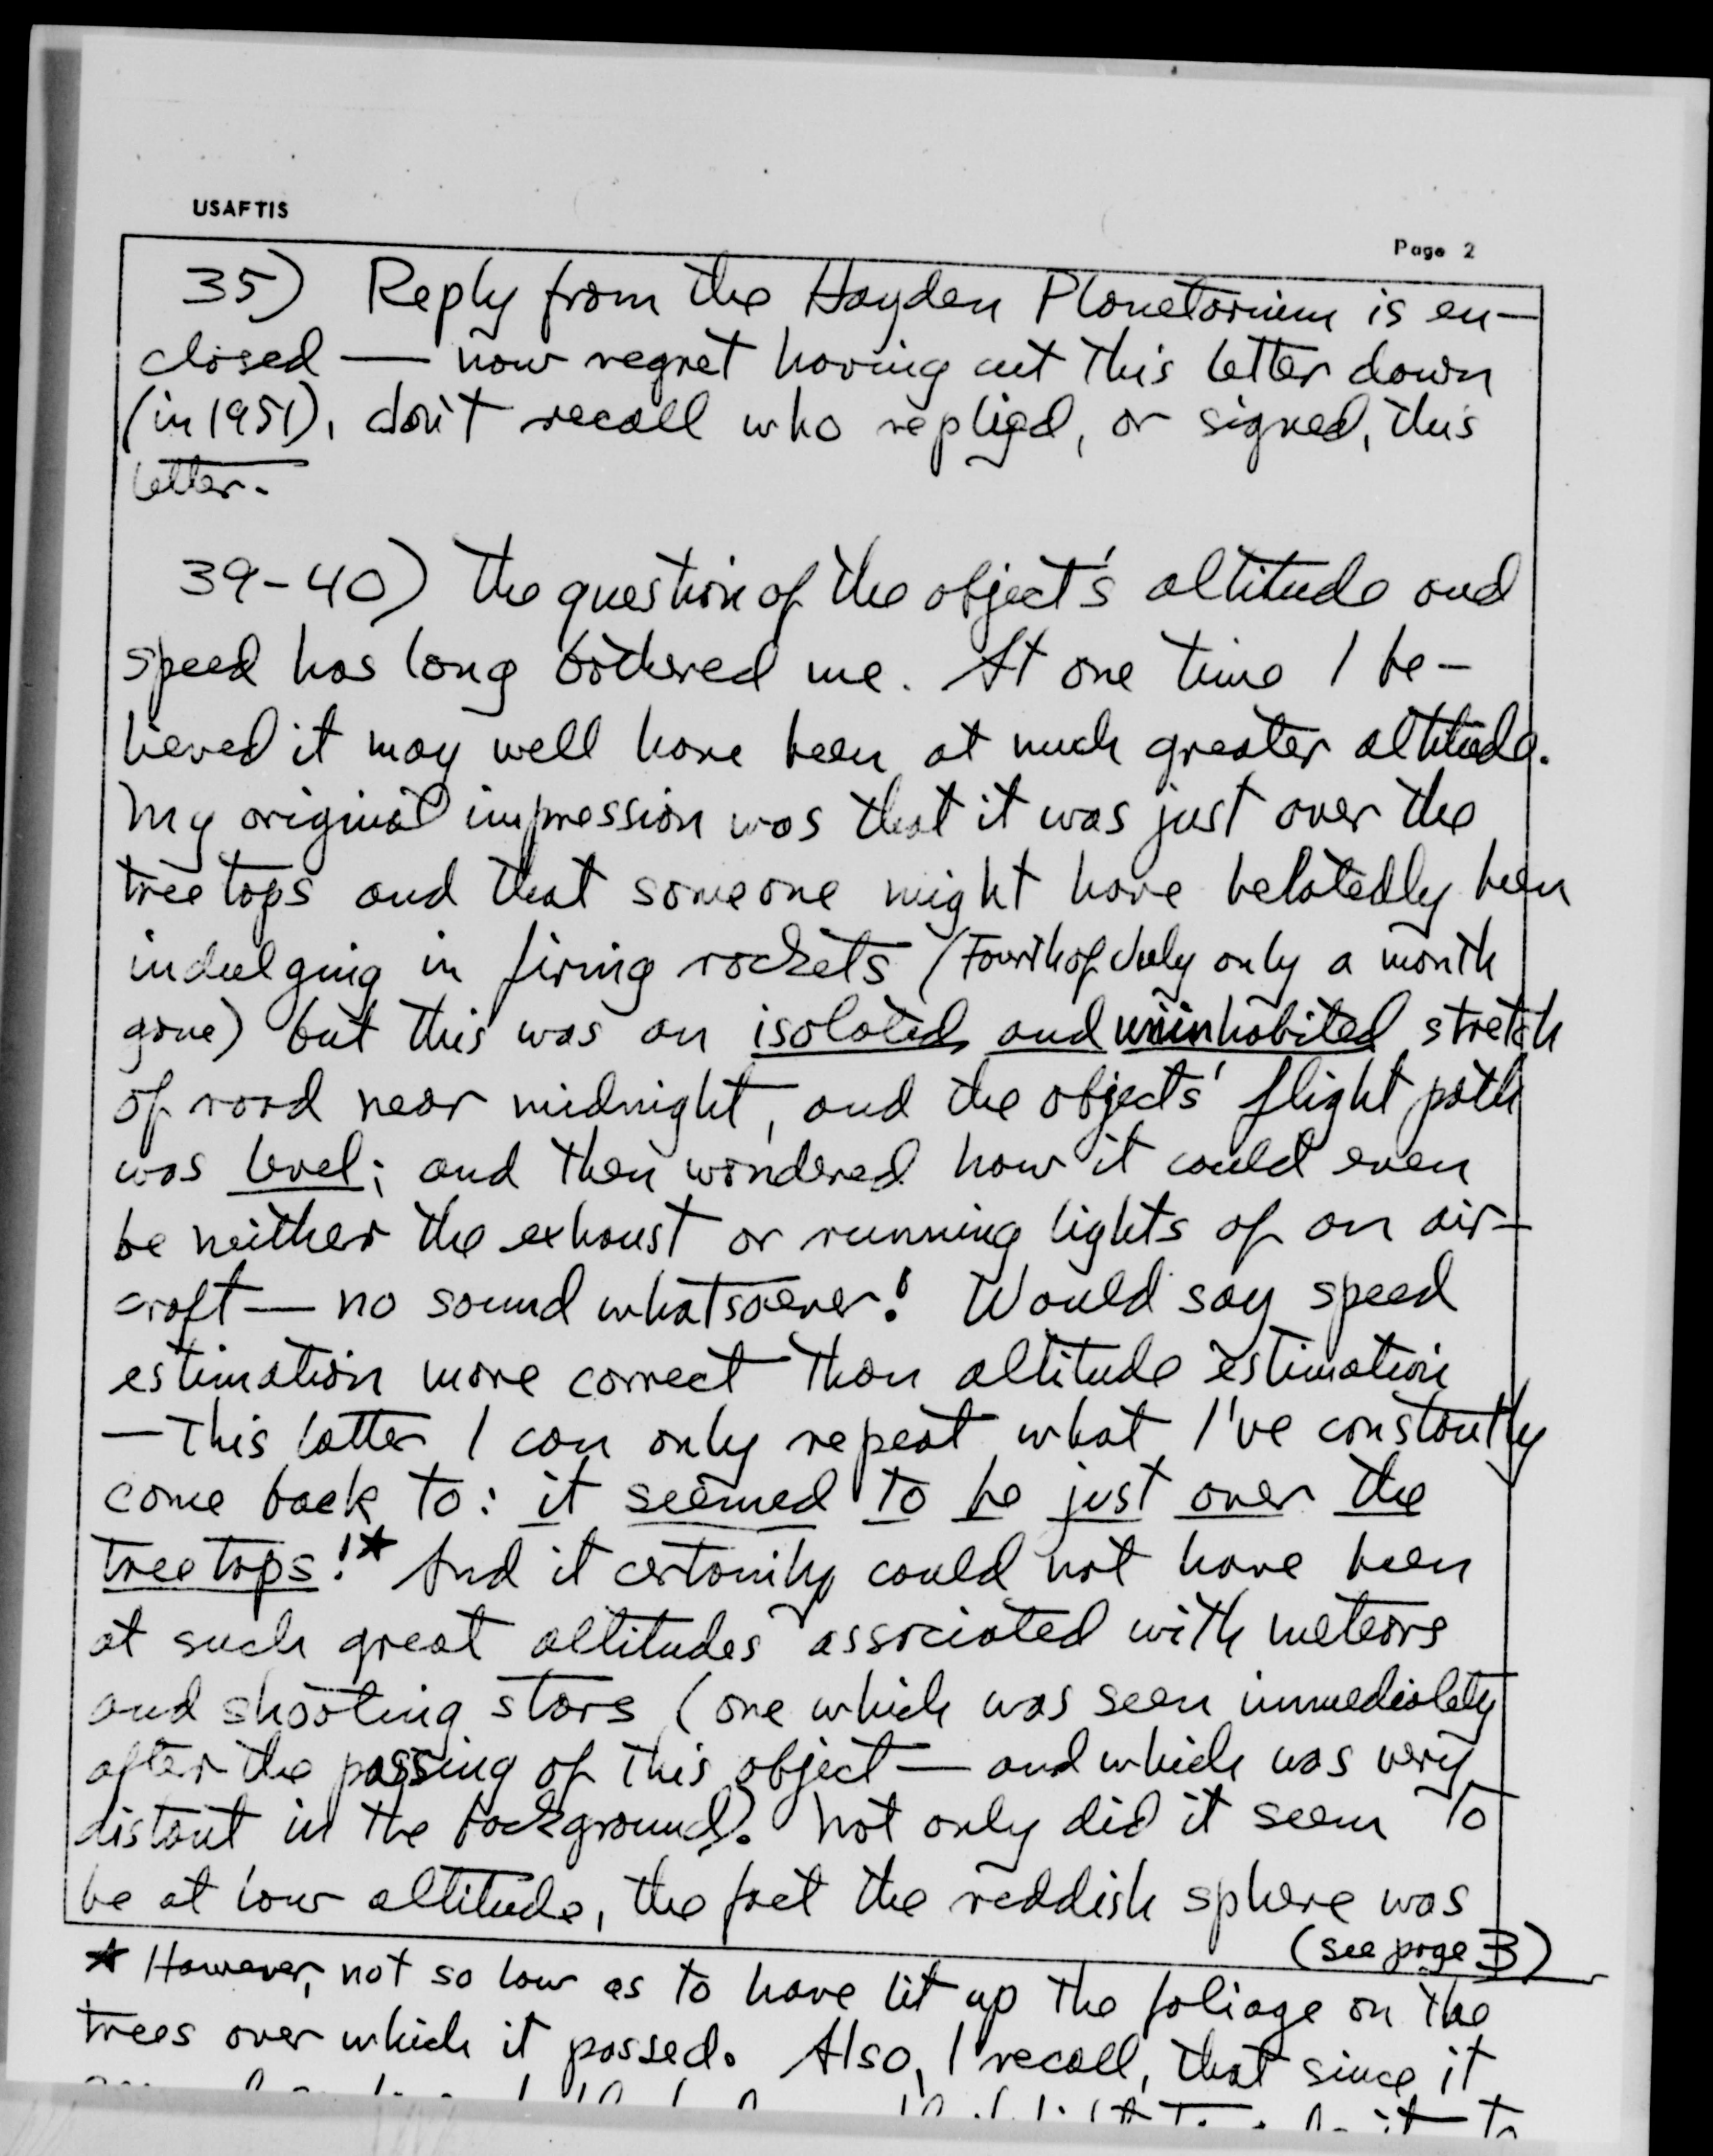 USAFTIS
Page 2
35) Reply from the Hayden Planetarium is en-
closed — now regret having cut this letter down
(in 1951), don't recall who replied, or signed, this
letter.
39-40) The question of the object's altitude and
speed has long bothered me. At one time I be-
lieved it may well have been at much greater altitude.
My original impression was that it was just over the
tree tops and that someone might have belatedly been
indulging in firing rockets (Fourth of July only a month
gone) but this was an isolated and uninhabited stretch
of road near midnight, and the objects' flight path
was level; and then wondered how it could even
be neither the exhaust or running lights of an air-
craft — no sound whatsoever! Would say speed
estimation more correct than altitude estimation
— This latter I can only repeat what I've constantly
come back to: it seemed to be just over the
tree tops!* And it certainly could not have been
at such great altitudes associated with meteors
and shooting stars (one which was seen immediately
after the passing of this object — and which was very
distant in the background). Not only did it seem to
be at low altitude, the fact the reddish sphere was
(see page 3)
* However, not so low as to have lit up the foliage on the
trees over which it passed. Also, I recall, that since it